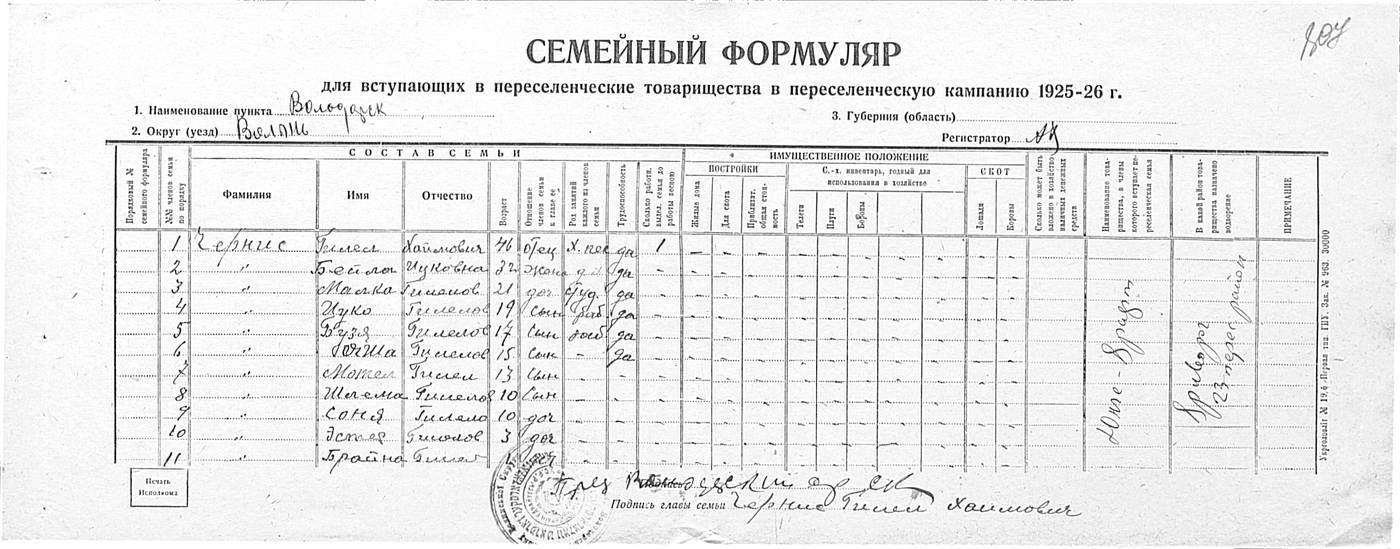 807
СЕМЕЙНЫЙ ФОРМУЛЯР
для вступающих в переселенческие товарищества в переселенческую кампанию 1925-26 г.
1. Наименование пункта Володарск
3. Губерния (область)
2. Округ (уезд) Волынь
Регистратор
Порядковый № семейного формуляра
№№ членов семьи по порядку
СОСТАВ СЕМЬИ
Фамилия
Имя
Отчество
Возраст
Отношение членов семьи к главе ее
Род занятий каждого из членов семьи
Трудоспособность
Сколько работн. выдел. семья до работы весною
ИМУЩЕСТВЕННОЕ ПОЛОЖЕНИЕ
ПОСТРОЙКИ
Жилые дома
Для скота
Приблизит. общая стоимость
С.-х. инвентарь, годный для использования в хозяйстве
Телеги
Плуги
Бороны
СКОТ
Лошади
Коровы
Сколько может быть вложено в хозяйство наличных денежных средств
Наименование товарищества, в члены которого вступает переселенческая семья
В какой район товарищества назначено водворение
ПРИМЕЧАНИЕ
1 Чернис Гилел Хаимович 46 отец Х. пек да 1 - - - - - - - - - -
2 " Бейла Ицковна 32 жена д.х. да - - - - - - - - - - -
3 " Малка Гилелов 21 доч Студ. да - - - - - - - - - - -
4 " Ицко Гилелов 19 Сын раб да - - - - - - - - - - -
5 " Бузя Гилелов 17 Сын да - - - - - - - - - - -
6 " Гилелов 15 Сын - да - - - - - - - - - - -
7 " Мотел Гилел 13 Сын - - - - - - - - - - - - -
8 " Шлема Гилелов 10 Сын - - - - - - - - - - - - -
9 " Соня Гилело 10 доч - - - - - - - - - - - - -
10 " Эстер Гилелов 3 доч - - - - - - - - - - - - -
11 " Брайна Гилел - - - - - - - - - - - - -
Криворог
23 перес район
Укрголовліт № 19,6 Первая тип. ГПУ. Зак. № 963. 300000
Печать Исполкома
Подпись главы семьи Чернис Гилел Хаимович